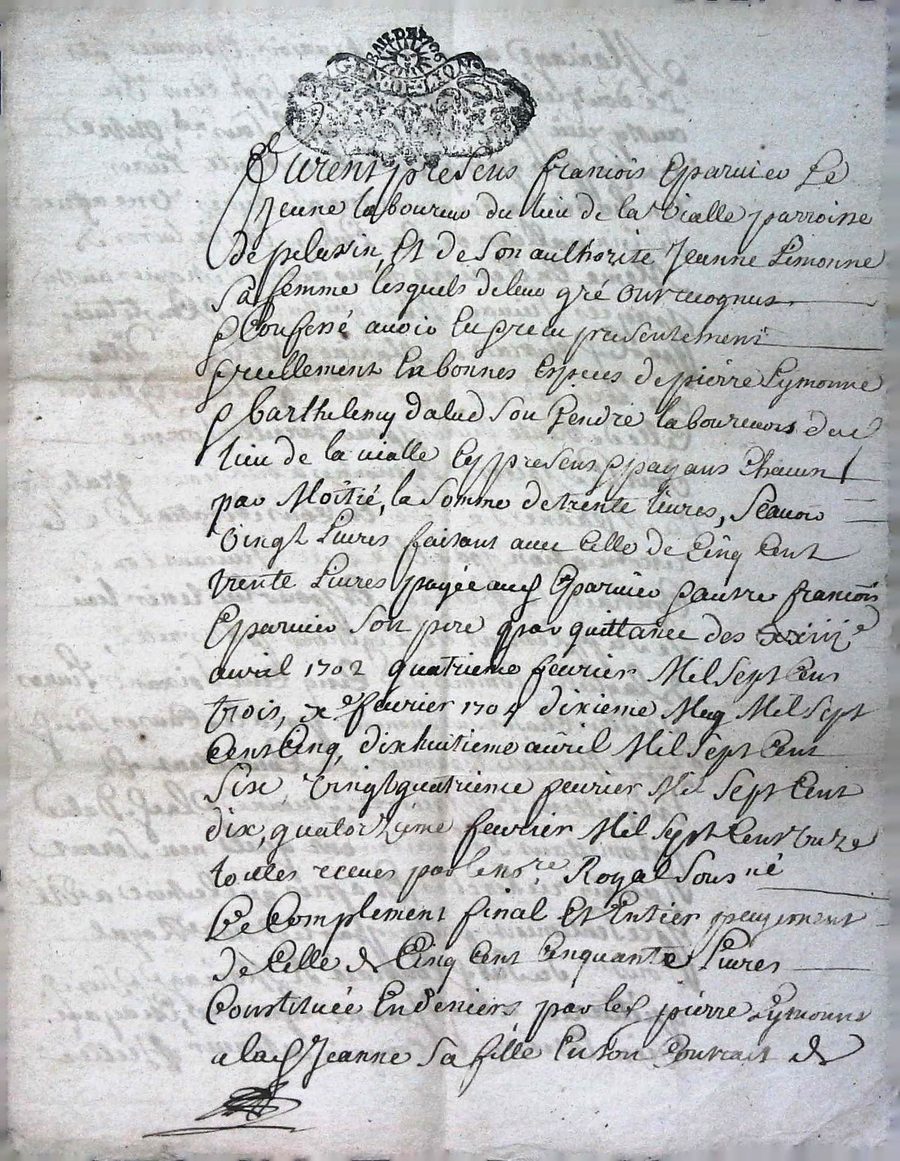 GEN DE LYON
Furent presens françois Eparvier Le
Jeune laboureur du lieu de la Vialle parroisse
de pelussin, Et de Son authorité Jeanne Limonne
sa femme lesquels de leur gré ont recognus
Confessé avoir Eu receu presentement
reellement En bonnes Espèces de pierre Lymonne
& barthelemy dalud Son Gendre laboureurs du
lieu de la vialle Cy presens & payans Chacun
par Moitié, la Somme de trente livres, Scavoir
Vingt Livres faisant avec Celle de Cinq Cent
trente Livres payée aud Eparvier & autre françois
Eparvier Son pere par quittance des
avril 1702 quatrieme fevrier Mil Sept Cens
trois, xe fevrier 1704 dixieme May Mil Sept
Cent Cinq, dixhuitieme avril Mil Sept Cent
Six, Vingtquatrieme fevrier Mil Sept Cent
dix, quatorzième fevrier Mil Sept Cent onze
toutes receues par le nre Royal Sousné
Le Complement final Et Entier payement
de Celle de Cinq Cent Cinquante Livres
Constituée En deniers par led pierre Lymonne
a lad Jeanne Sa fille En son Contrat de